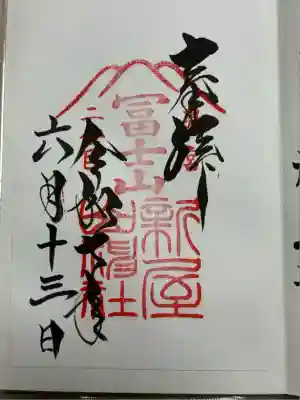 奉拝
冨士山
新屋
山神社
令和年
六月十三日